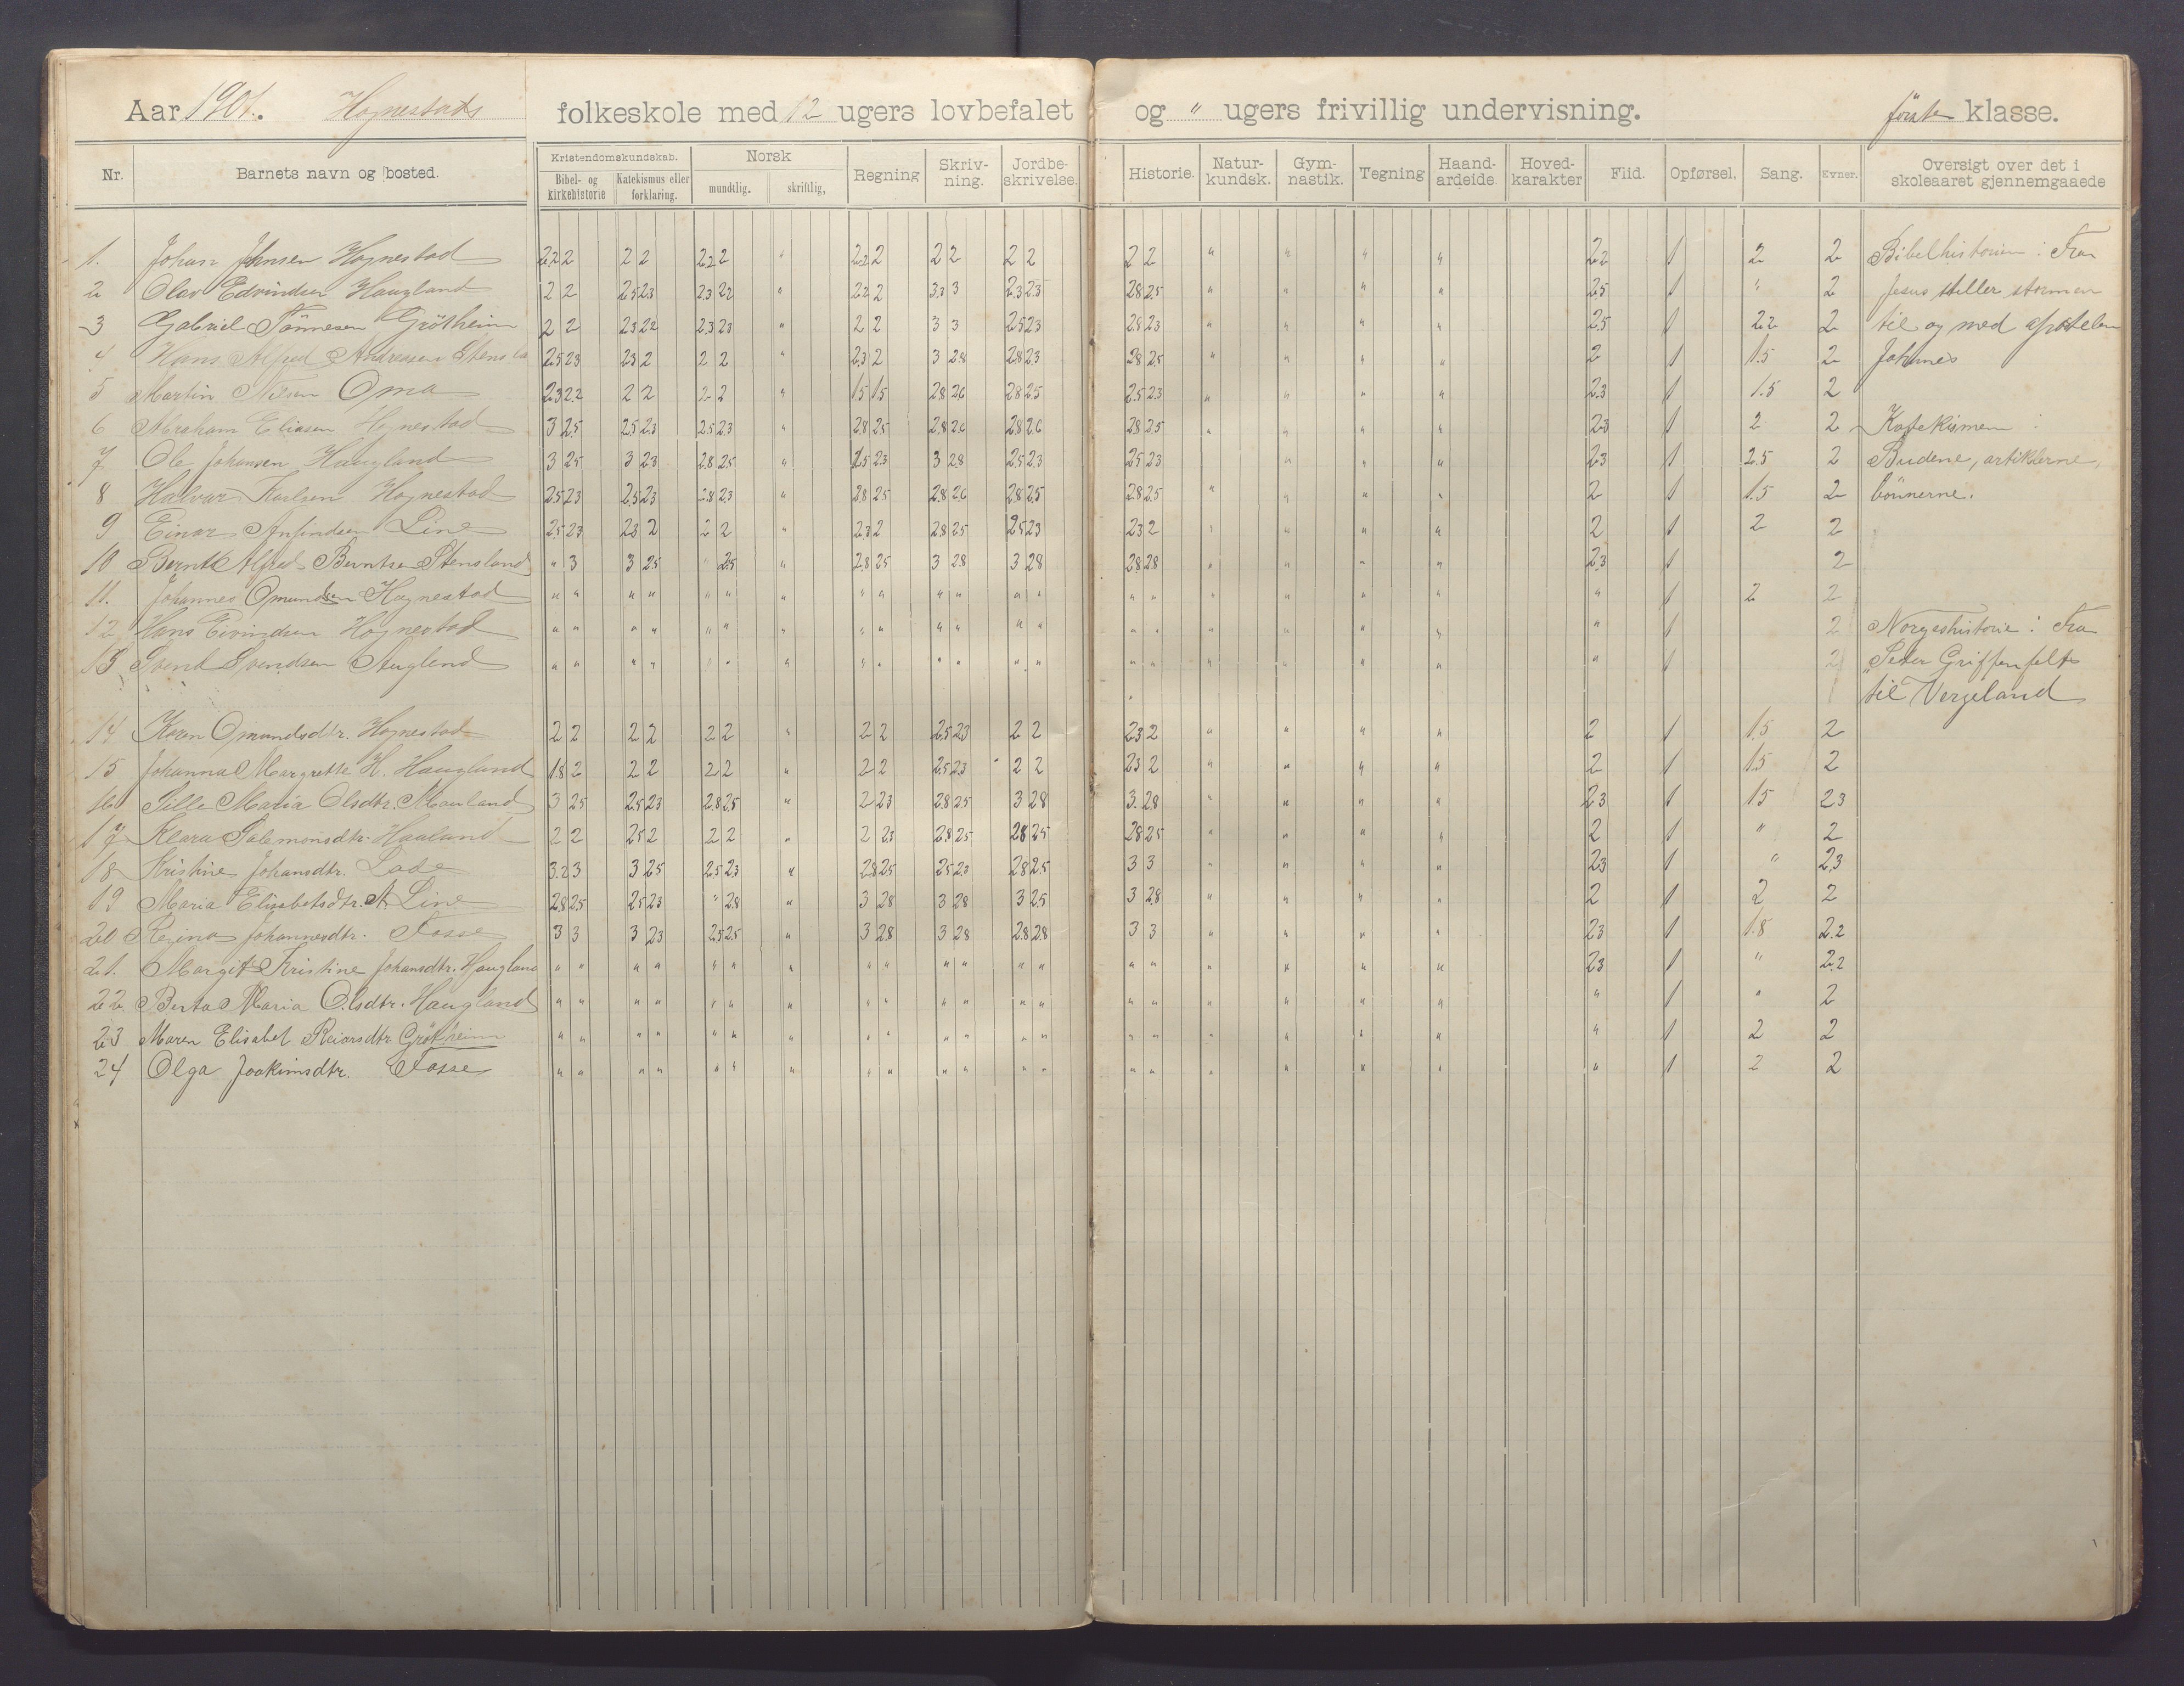 Aar 1901. Hognestads folkeskole med 12 ugers lovbefalet og " ugers frivillig undervisning. første klasse.
Nr. Barnets navn og bosted. Kristendomskundskab. Bibel- og kirkehistorie Katekismus eller forklaring. Norsk mundtlig. skriftlig, Regning Skriv-ning. Jordbe-skrivelse. Historie. Natur-kundsk. Gym-nastik. Tegning Haand-ardeide Hoved-karakter Flid. Opførsel. Sang. Evner. Oversigt over det i skoleaaret gjennemgaaede
1. Johan Jensen Hognestad 2.2 2 2 2 2.2 2 " 2.2 2 2 2 2 2 2 2 " " " " 2.2 1 2 2 Bibelhistorien: Fra
2 Olav Edvindsen Haugland 2 2 2.5 2.3 2.3 2.2 " 2.2 2 3.3 3 2.3 2.3 2.8 2.5 " " " " 2.5 1 " 2 Jesus stiller stormen
3 Gabriel Tönnesen Grötheim 2 2 2.3 2.2 2.3 2.3 " 2 2 3 3 2.5 2.3 2.8 2.3 " " " " 2.5 1 2.2 2 til og med apostelen
4 Hans Alfred Andreasen Stensla 2.5 2.3 2.3 2 2 2 " 2.3 2 3 2.8 2.8 2.3 2.8 2.5 " " " " 2 1 1.5 2 Johannes
5 Martin Nilsen Oma 2.3 2.2 2 2 2 2 " 1.5 1.5 2.8 2.6 2.8 2.5 2.5 2.3 " " " " 2.3 1 1.5 2
6 Abraham Eliasen Hognestad 3 2.5 2.5 2.3 2.5 2.3 " 2.8 2.5 2.8 2.6 2.8 2.6 2.8 2.5 " " " " 2.3 1 2 2 Katekismen:
7 Ole Johansen Haugland 3 2.5 3 2.3 2.8 2.5 " 2.5 2.3 3 2.8 2.5 2.3 2.5 2.3 " " " 2.3 1 2.5 2 Budene, artiklerne,
8 Halvar Karlsen Hognestad 2.5 2.3 2.5 2.3 2.8 2.3 " 2.8 2.5 2.8 2.6 2.8 2.5 2.8 2.5 " " " " 2 1 1.5 2 bönnerne.
9 Einar Anfindsen Line 2.5 2.3 2.3 2 2 2 " 2.3 2 2.8 2.5 2.5 2.3 2.3 2 " " " " 2 1 2 2
10 Bernt Alfred Berntsen Stensland " 3 3 2.5 " 2.5 " 2.8 2.5 3 2.8 3 2.8 2.8 2.8 " " " " 2.3 1 2
11. Johannes Omundsen Hognestad " " " " " " " " " " " " " " " " " " " " 1 2 2
12 Hans Eivindsen Hognestad " " " " " " " " " " " " " " " " " " " " 1 2 Norgeshistorie: Fra
13 Svend Svendsen Auglend " " " " " " " " " " " " " " " " " " " " 1 2 "Peter Griffenfelt
til Vergeland
14 Karen Omundsdtr. Hognestad 2 2 2 2 2 2 " 2 2 2.5 2.3 2 2 2.3 2 " " " " 2 1 1.5 2
15 Johanna Margrethe H. Haugland 1.8 2 2 2 2 2 " 2 2 2.5 2.3 2 2 2.3 2 " " " " 2 1 1.5 2
16 Sille Maria Olsdtr. Mauland 3 2.5 2.5 2.3 2.8 2.5 " 2 2.3 2.8 2.5 3 2.8 3. 2.8 " " " " 2.3 1 1.5 2.3
17 Klara Salemonsdtr. Haaland 2 2 2.5 2 2 2 " 2 2.3 2.8 2.5 2.8 2.5 2.8 2.5 " " " " 2 1 " 2
18 Kristine Johansdtr. Lade 3.2 3 3 2.5 2.5 2.3 " 2.8 2.5 2.5 2.3 2.8 2.5 3 3 " " " " 2.3 1 " 2.3
19 Maria Elisabetsdtr. A. Line 2.8 2.5 2.5 2.3 " 2.8 " 3 2.8 3 2.8 3 2.5 3 2.8 " " " " 2 1 2 2
20 Regina Johannesdtr. Fosse 3 3 3 2.3 2.5 2.5 " 3 2.8 3 2.8 2.8 2.8 3 3 " " " " 2.3 1 1.8 2.2
21. Margit Kristine Johansdtr. Haugland " " " " " " " " " " " " " " " " " " " 2.3 1 " 2.2
22 Berta Maria Olsdtr. Haugland " " " " " " " " " " " " " " " " " " " " 1 " 2
23 Maren Elisabet Reiarsdtr. Grötheim " " " " " " " " " " " " " " " " " " " " 1 2 2
24 Olga Joakimsdtr. Fosse " " " " " " " " " " " " " " " " " " " " 1 2 2